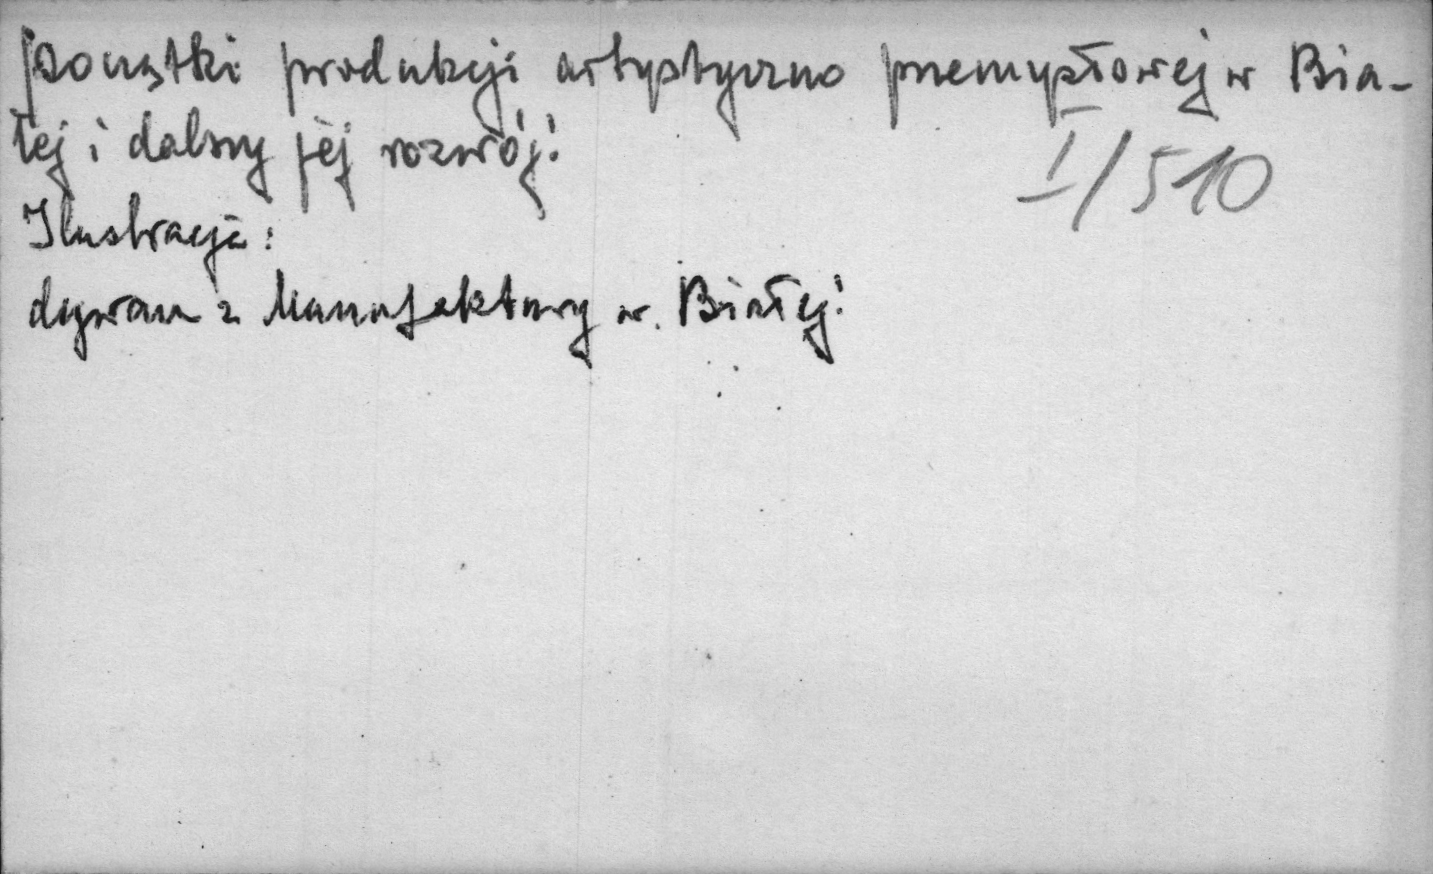 początki produkcji artystyczno przemysłowej w Bia-
łej i dalszy jej rozwój.
I/510
Ilustracja:
dywan z Manufaktury w. Białej.